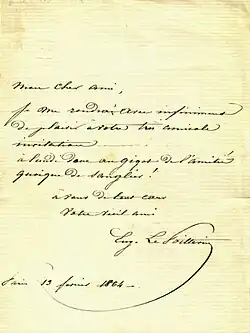 Mon cher ami,
je me rendrai avec infiniment
de plaisir à votre très amicale
invitation
à lundi donc au gigot de l'amitié
quoique de sanglier !
à vous de tout cœur
Votre vieil ami
Eug. Le Poittevin
Paris 13 février 1864